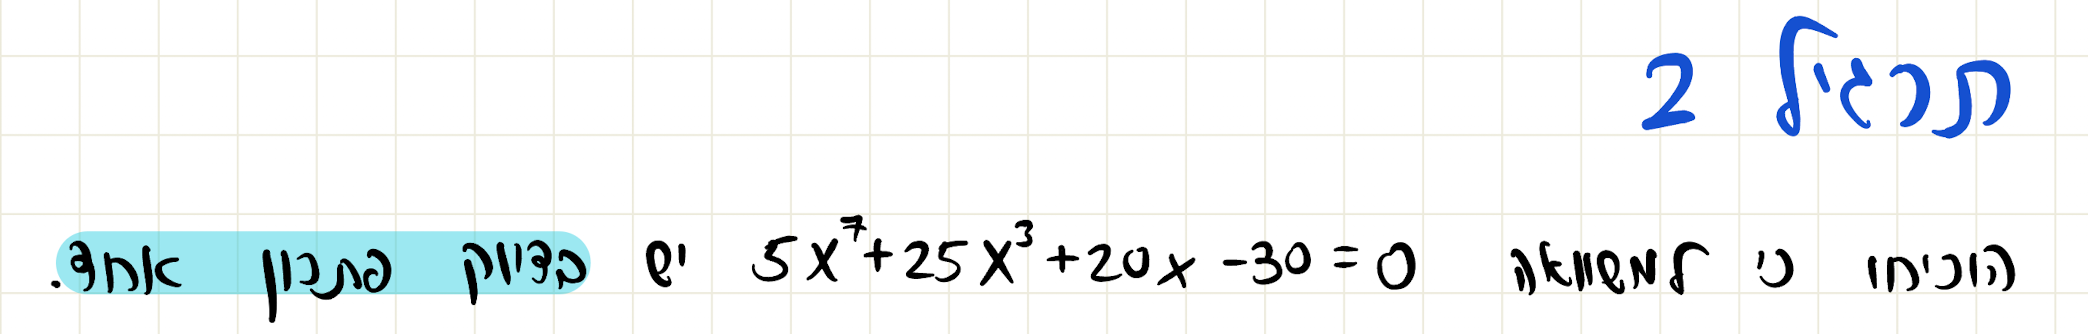 תרגיל 2
הוכיחו כי למשוואה 5x⁷+25x³+20x-30=0 יש בדיוק פתרון אחד.